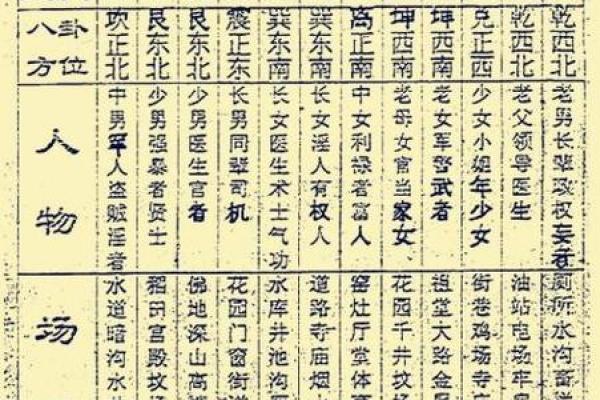 八卦
方位
坎正北
艮东北
艮东北
震正东
巽东南
巽东南
离正南
坤西南
坤西南
兑正西
乾西北
乾西北
人物
中男军人盗贼淫者
少男强暴者贤士
少男医生官者
长男同辈司机
长女医生术士气功
长女淫人有权人
中女利禄者富人
老母女官当家女
老女军警武者
少女小姐年少女
老父领导医生
老男长辈政权妄者
场
水道暗沟水
稻田宫殿坟
佛地深山高
花园门窗街
水库井池沟
道路寺庙烟
窑灶厅堂体
花园千井坟
祖堂大路金
街巷鸡场寺
油站电场牢
厕所水沟畜